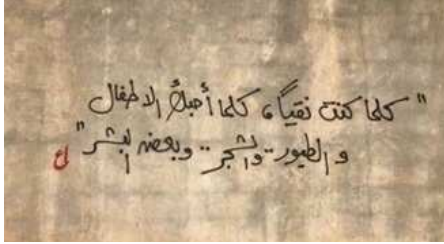 " كلما كنت نقياً، كلما أحبكَ الاطفال
و الطيور .. والشجر .. وبعض البشر "